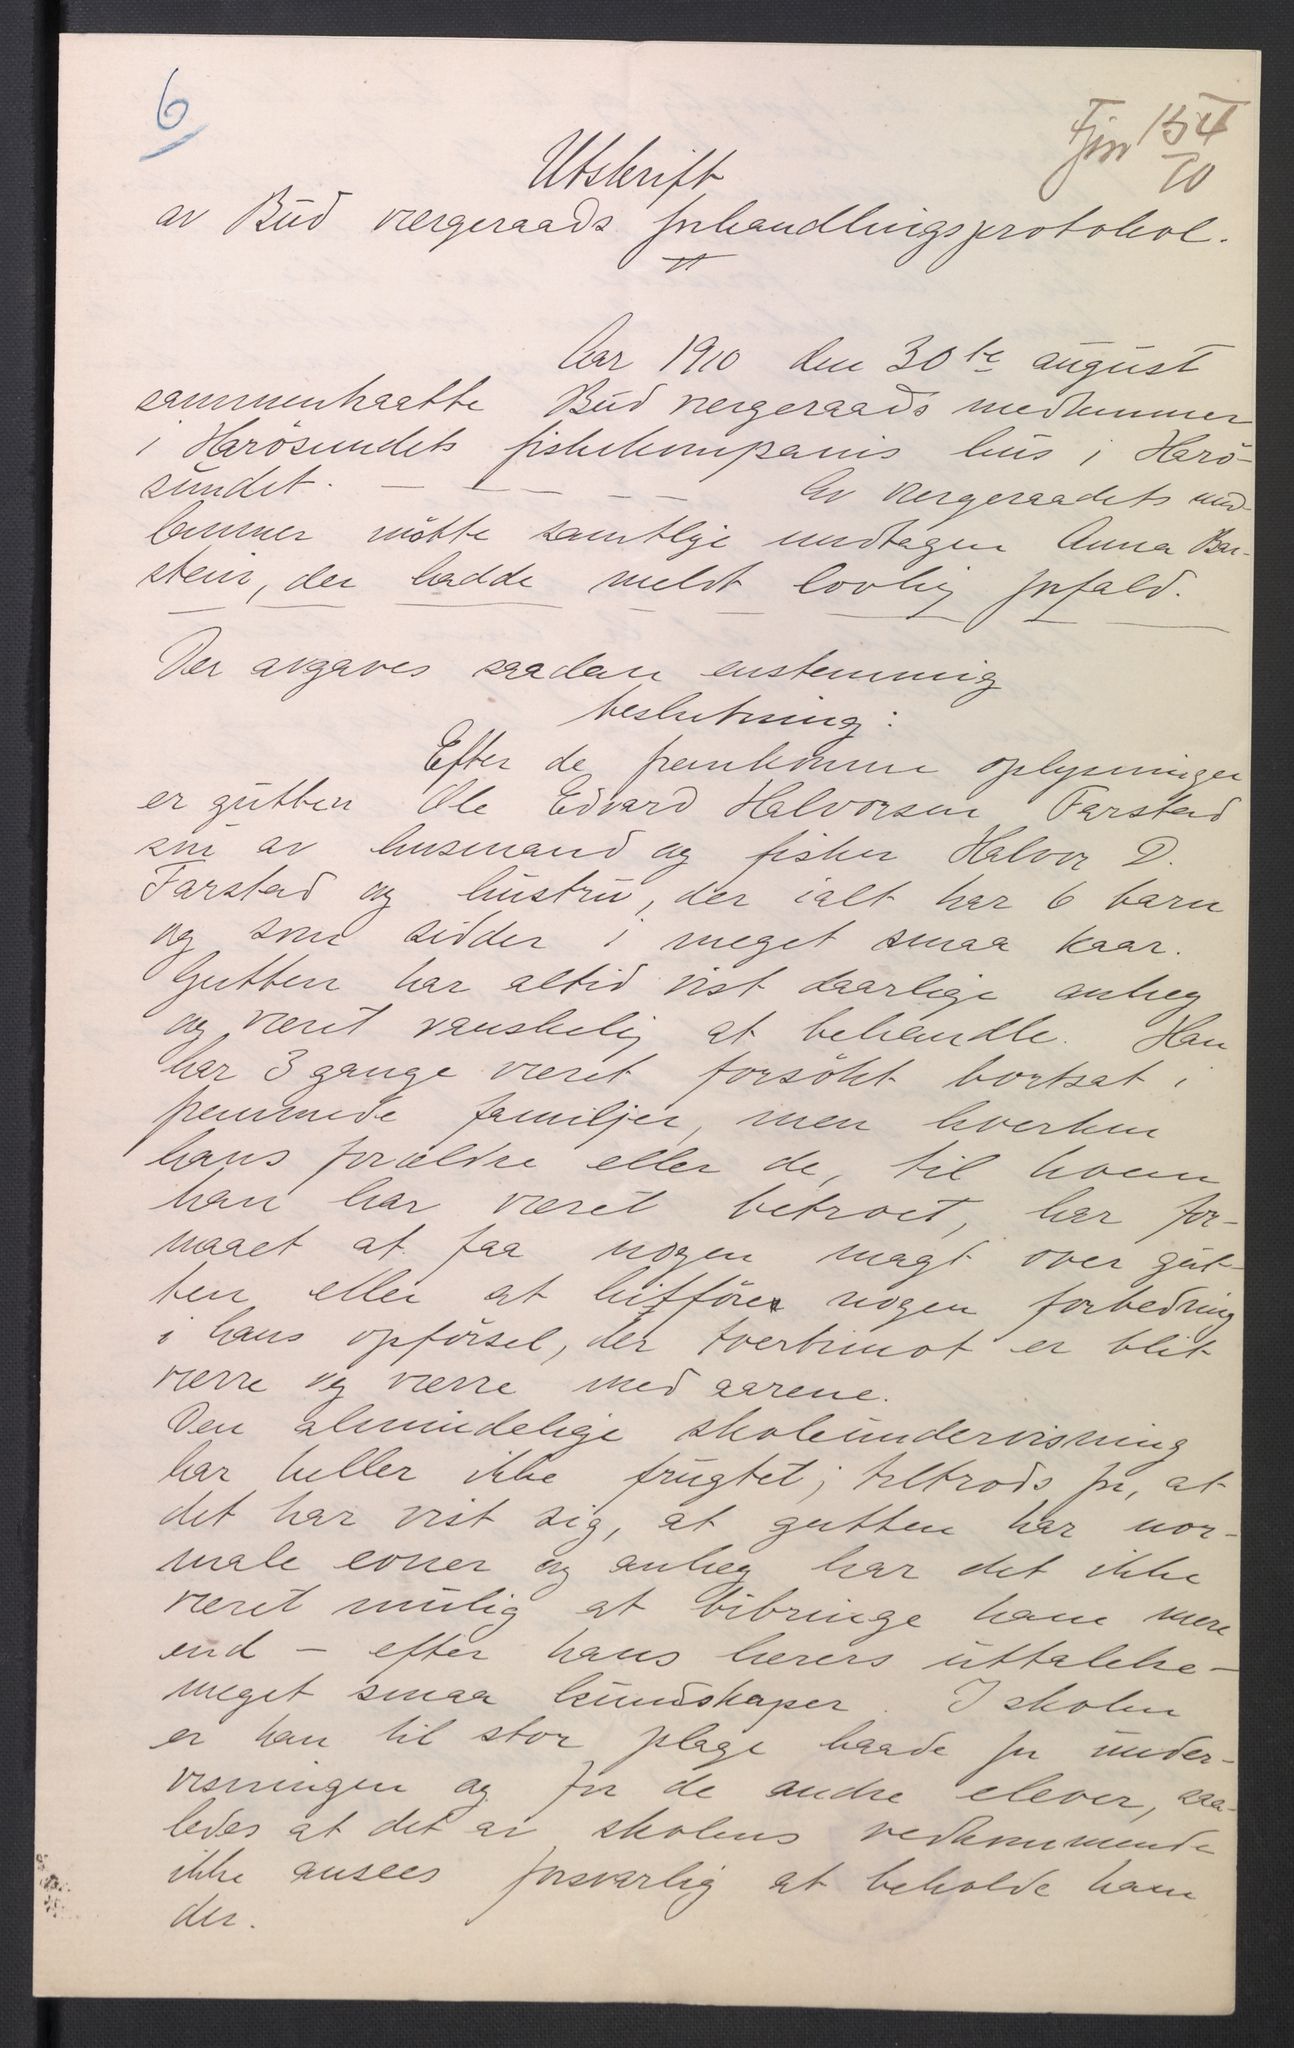 6
Fjm 154
10
Utskrift
av Bud vergeraads forhandlingsprotokol.
Aar 1910 den 30te august
sammenkaatte Bud vergeraads medlemmer
i Harösundets fiskekompanis hus i Harö-
sundet. — — — — Av vergeraadets med-
lemmer mötte samtlige undtagen Anna Bar-
stein, der hadde meldt lovlig forfald.
Der avgaves saadan enstemmig
beslutning:
Efter de fremkomne oplysninger
er gutten Ole Edvard Halvorsen Farstad
søn av husmand og fisker Halvor D.
Farstad og hustru, der ialt har 6 barn
og som sidder i meget smaa kaar.
Gutten har altid vist daarlige anlæg
og været vanskelig at behandle. Han
har 3 gange været forsökt bortsat i
fremmede familjer, men hverken
hans forældre eller de, til hvem
han har været betroet, har for-
maaet at faa nogen magt over gut-
ten eller at hitföre nogen forbedring
i hans opförsel, der tvertimot er blit
værre og værre med aarene.
Den almindelige skoleundervisning
har heller ikke frugtet; tiltrods for, at
det har vist sig, at gutten har nor-
male evner og anlæg har det ikke
været mulig at bibringe ham mere
end – efter hans lærers uttalelse –
meget smaa kundskaper. I skolen
er han til stor plage baade for under-
visningen og for de andre elever, saa-
ledes at det av skolens vedkommende
ikke ansees forsvarlig at beholde ham
der.